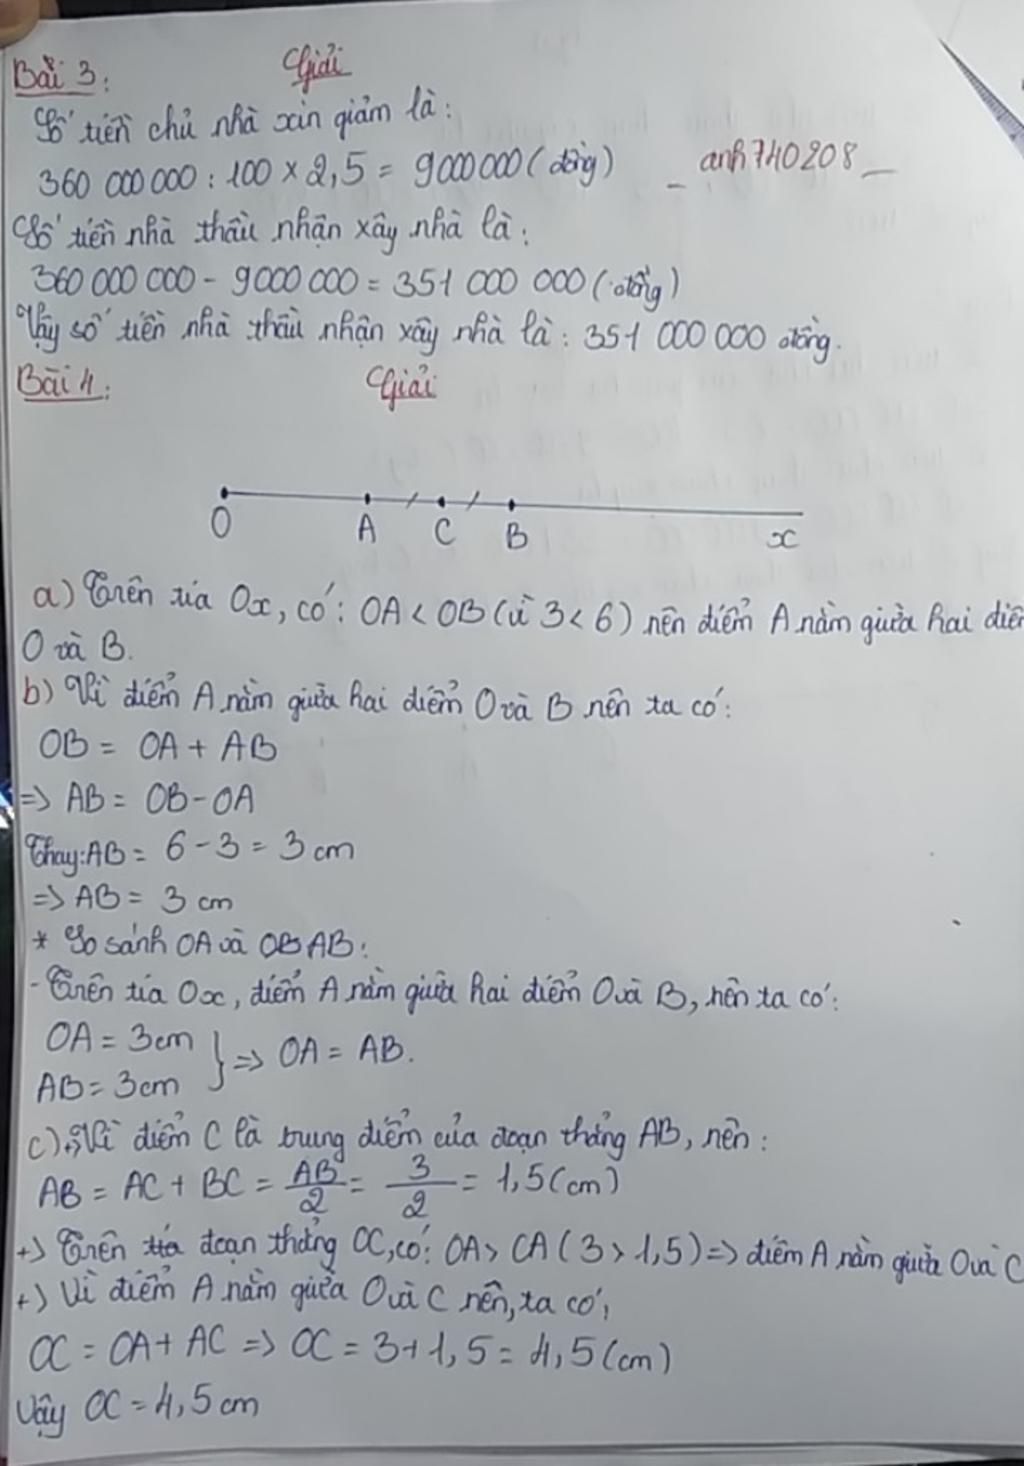 Bài 3:
Giải
Số tiền chủ nhà xin giảm là:
360 000 000 : 100 x 2,5 = 9000000 (đồng)
_ anh740208 _
Số tiền nhà thầu nhận xây nhà là:
360 000 000 - 9000 000 = 351 000 000 (đồng)
Vậy số tiền nhà thầu nhận xây nhà là: 351 000 000 đồng.
Bài 4:
Giải
O A C B x
a) Trên tia Ox, có: OA < OB (vì 3 < 6) nên điểm A nằm giữa hai điể
O và B.
b) Vì điểm A nằm giữa hai điểm O và B nên ta có:
OB = OA + AB
=> AB = OB - OA
Thay: AB = 6 - 3 = 3 cm
=> AB = 3 cm
* So sánh OA và AB:
- Trên tia Ox, điểm A nằm giữa hai điểm O và B, nên ta có:
OA = 3cm
} => OA = AB.
AB = 3cm
c) +) Vì điểm C là trung điểm của đoạn thẳng AB, nên:
AB = AC + BC = AB/2 = 3/2 = 1,5 (cm)
+) Trên đoạn thẳng OC, có: OA > CA (3 > 1,5) => điểm A nằm giữa O và C
+) Vì điểm A nằm giữa O và C nên, ta có:
OC = OA + AC => OC = 3 + 1,5 = 4,5 (cm)
Vậy OC = 4,5 cm